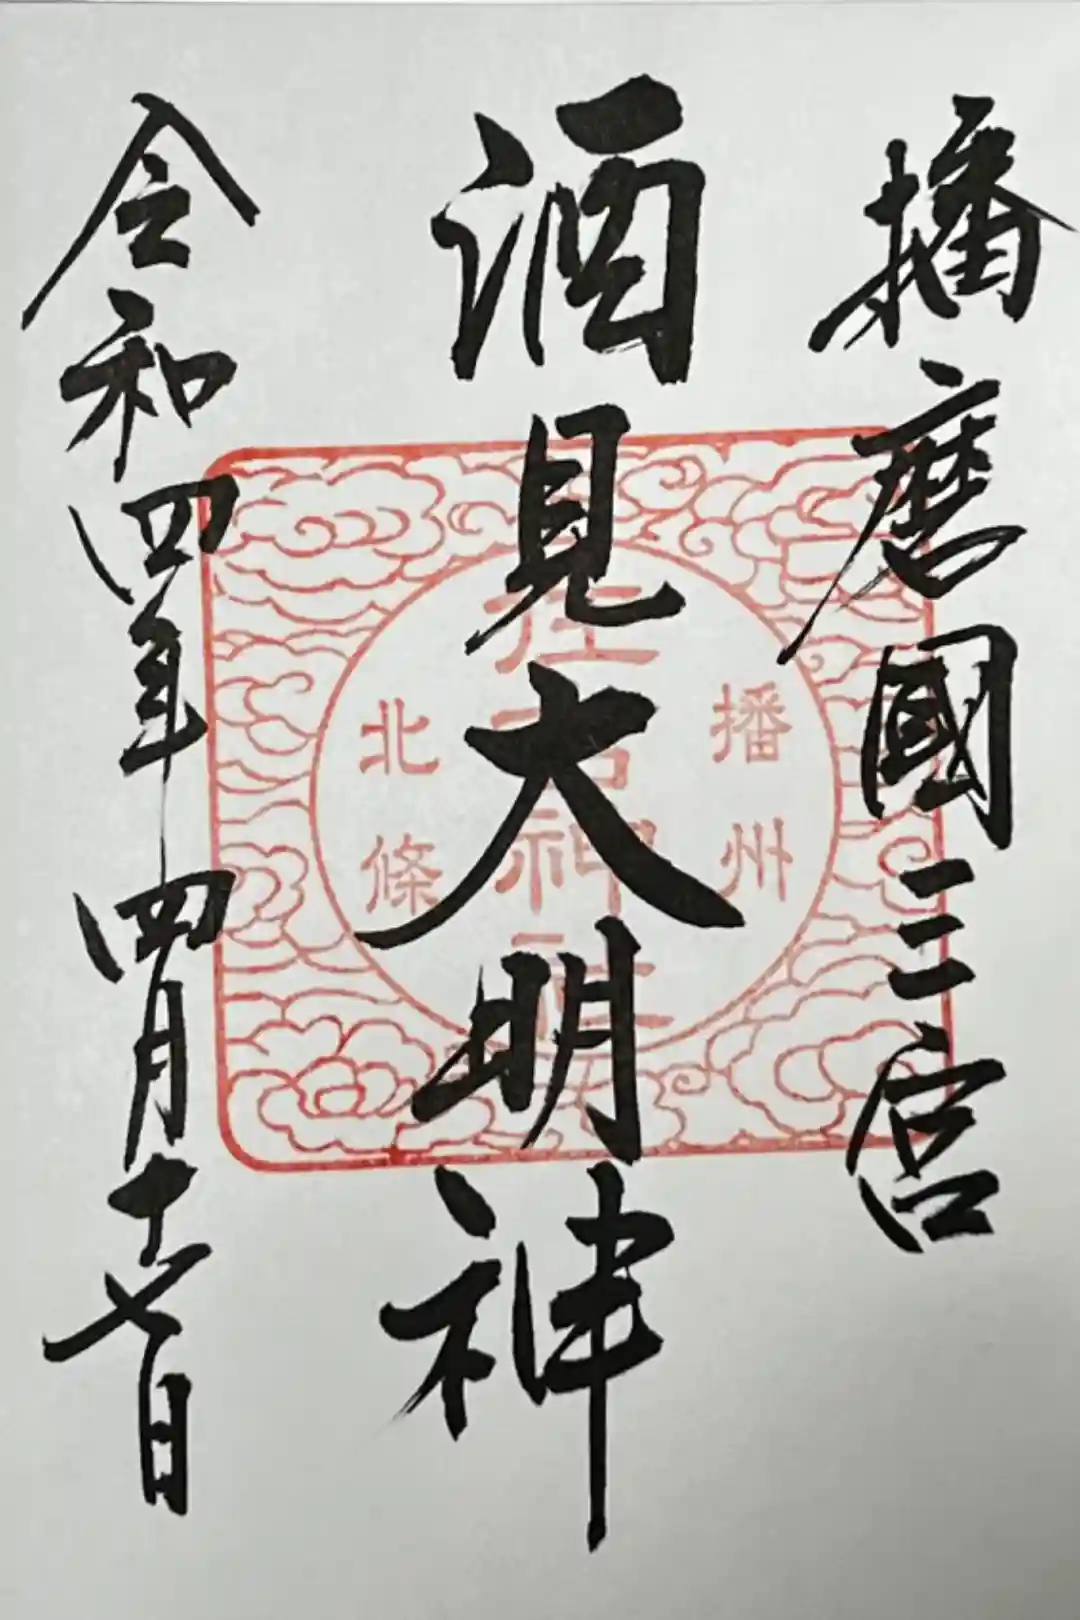 播磨國三宮
酒見大明神
令和四年四月十七日
播州
住吉神社
北條